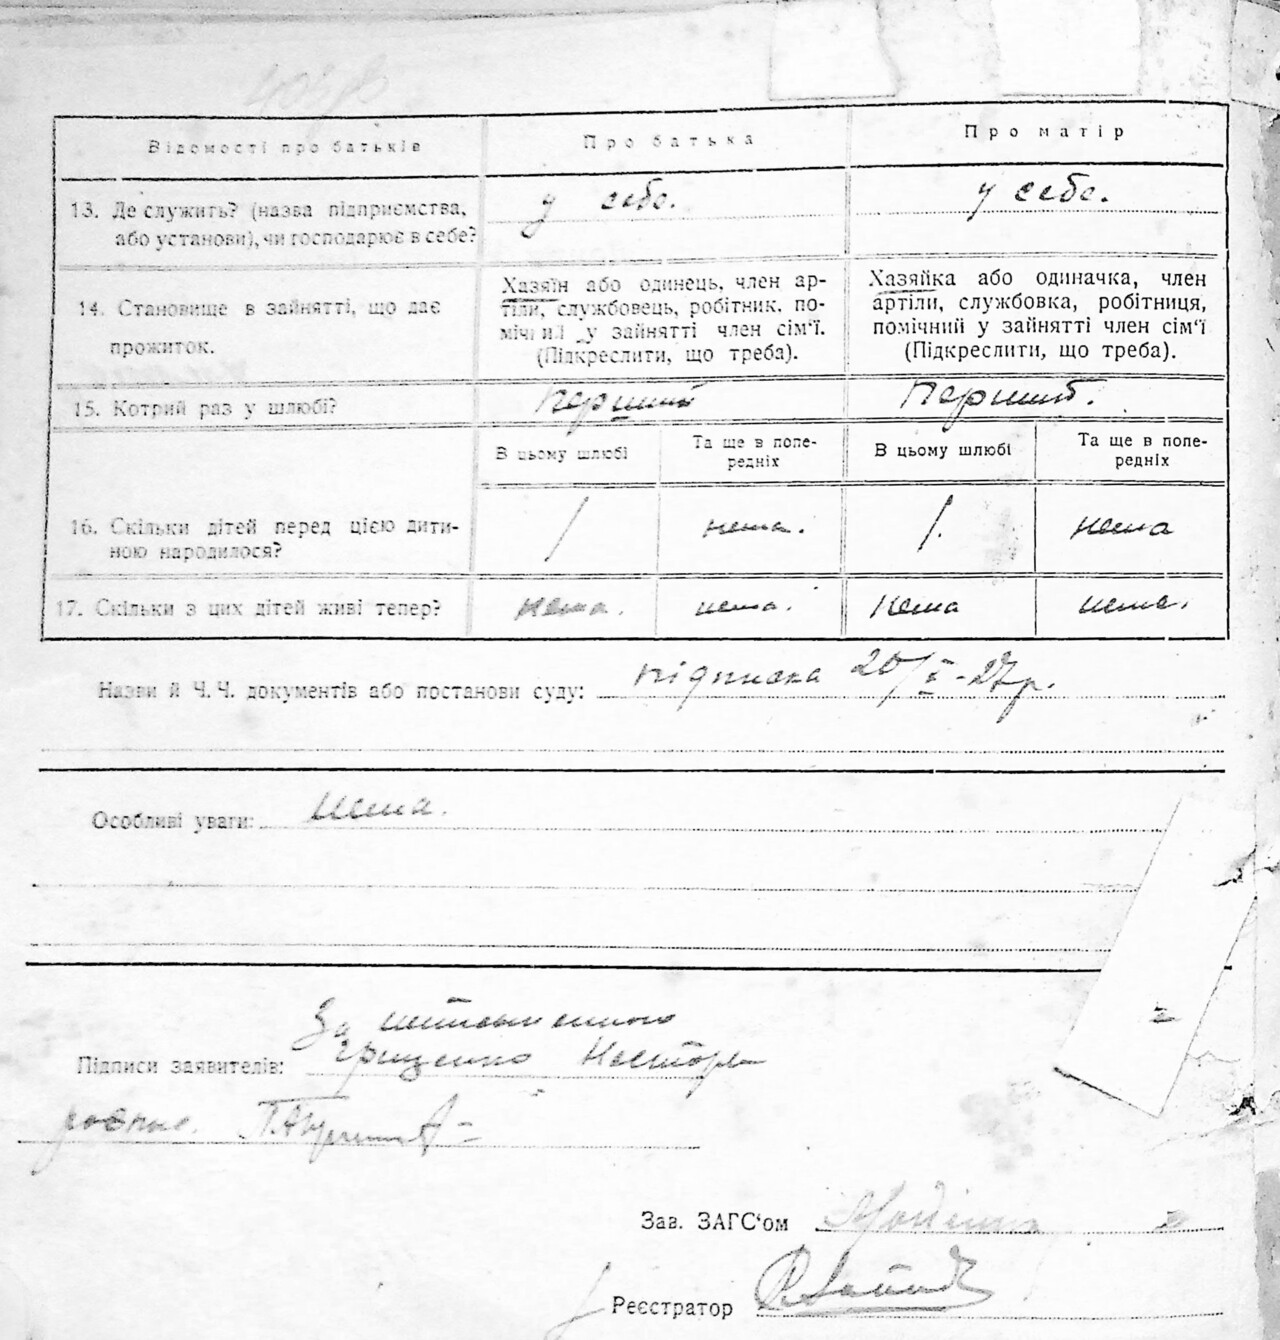 Відомості про батьків
Про батька
Про матір
13. Де служить? (назва підприємства,
або установи), чи господарює в себе?
у себе.
у себе.
14. Становище в зайнятті, що дає
прожиток.
Хазяїн або одинець, член ар-
тіли, службовець, робітник. по-
мічний у зайнятті член сім'ї.
(Підкреслити, що треба).
Хазяйка або одиначка, член
артіли, службовка, робітниця,
помічний у зайнятті член сім'ї
(Підкреслити, що треба).
15. Котрий раз у шлюбі?
Перший
Перший.
В цьому шлюбі
Та ще в попе-
редніх
В цьому шлюбі
Та ще в попе-
редніх
16. Скільки дітей перед цією дити-
ною народилося?
1
нема.
1.
нема
17. Скільки з цих дітей живі тепер?
нема.
нема.
нема
нема.
Назви й Ч.Ч. документів або постанови суду: підписка 20/X-27р.
Особливі уваги: нема.
За неписьменного
Підписи заявителів: Грищенко Нестора
Зав. ЗАГС'ом
Реєстратор